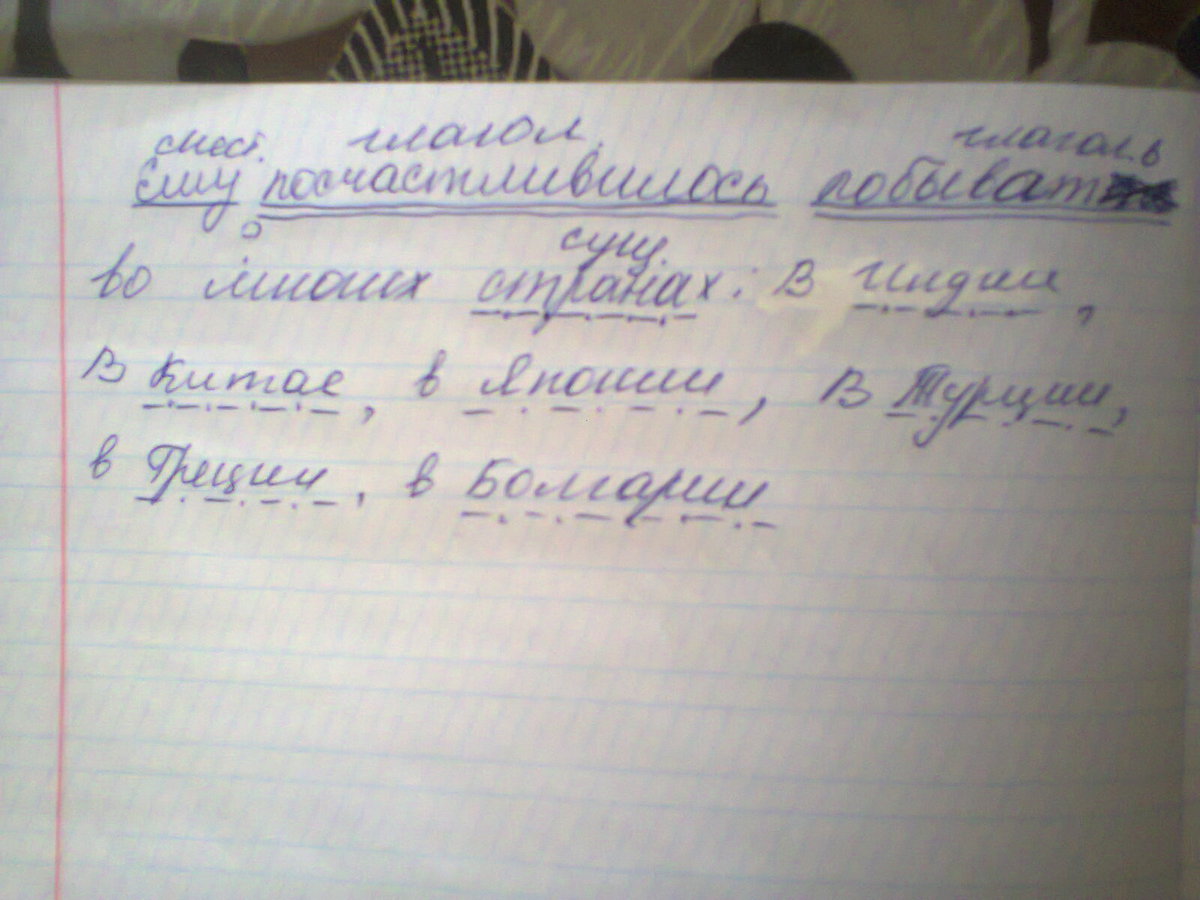 мест. глагол. глаголь
Ему посчастливилось побывать
сущ.
во многих странах: В Индии,
В Китае, в Японии, В Турции,
в Греции, в Болгарии